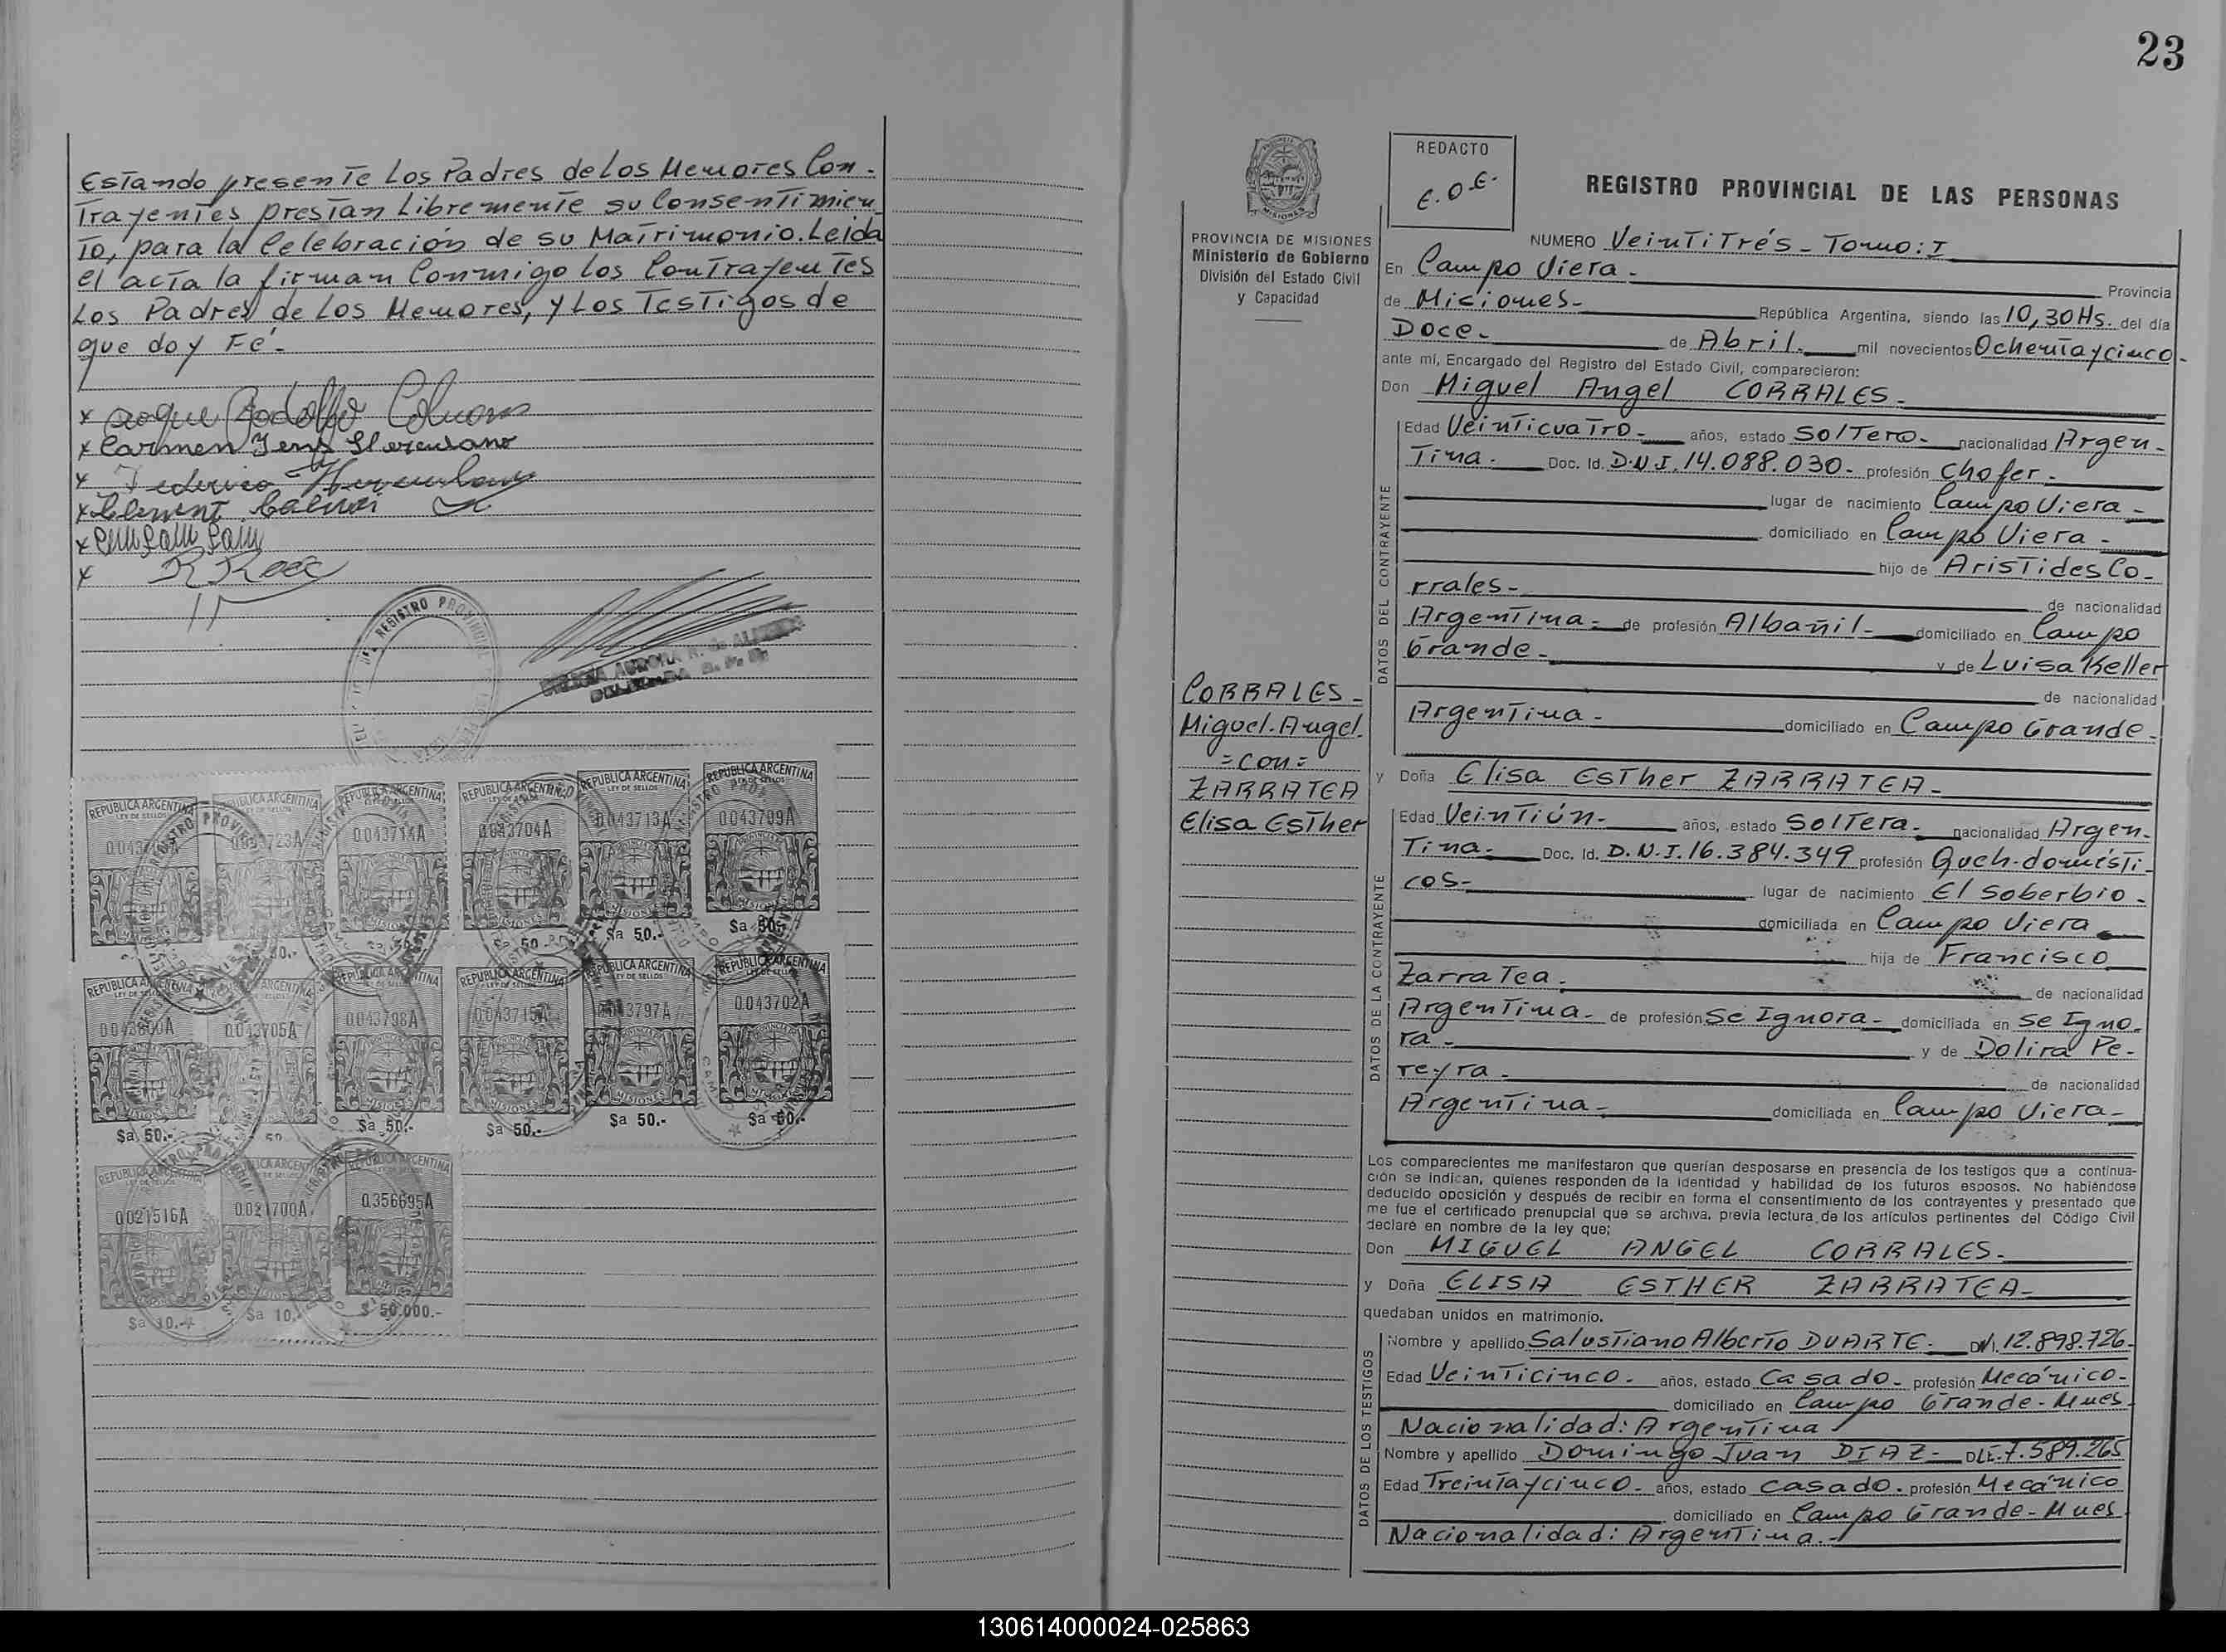 Estando presente Los Padres de Los Menores Con-
Trayentes prestan Libremente su Consentimien-
To, para la Celebración de su Matrimonio. Leida
el acta la firman Conmigo los Contrayentes
Los Padres de Los Menores, y Los Testigos de
que doy Fé.-
x Roque Rodolfo
x Carmen Herculano
x Federico
x
x
x
REPUBLICA ARGENTINA
REPUBLICA ARGENTINA
REPUBLICA ARGENTINA
REPUBLICA ARGENTINA
REPUBLICA ARGENTINA
REPUBLICA ARGENTINA
LEY DE SELLOS
0.043714A
0.043704A
0.043713A
0.043709A
MISIONES
$a 50.-
$a 50.-
$a 50.-
REPUBLICA ARGENTINA
REPUBLICA ARGENTINA
REPUBLICA ARGENTINA
REPUBLICA ARGENTINA
REPUBLICA ARGENTINA
0.043705A
0.043798A
0.043797A
0.043702A
$a 50.-
$a 50.-
$a 50.-
$a 50.-
$a 50.-
REPUBLICA ARGENTINA
REPUBLICA ARGENTINA
REPUBLICA ARGENTINA
0.021516A
0.021700A
0.356695A
$a 10.-
$a 10.-
$ 50.000.-
23
PROVINCIA DE MISIONES
Ministerio de Gobierno
División del Estado Civil
y Capacidad
CORRALES-
Miguel Angel.
=con=
ZARRATEA
Elisa Esther
REDACTO
E.O.E.
REGISTRO PROVINCIAL DE LAS PERSONAS
NUMERO VeintiTrés - Tomo: I
En Campo Viera - Provincia
de Misiones.- República Argentina, siendo las 10,30 Hs. del día
Doce- de Abril.- mil novecientos Ochenta y cinco-
ante mí, Encargado del Registro del Estado Civil, comparecieron:
Don Miguel Angel CORRALES-
DATOS DEL CONTRAYENTE
Edad VeinticuaTro- años, estado SolTero- nacionalidad Argen-
Tina. Doc. Id. D.N.I. 14.088.030- profesión Chofer-
lugar de nacimiento Campo Viera-
domiciliado en Campo Viera-
hijo de Aristides Co-
rrales- de nacionalidad
Argentina- de profesión Albañil- domiciliado en Campo
Grande- y de Luisa Keller
de nacionalidad
Argentina- domiciliado en Campo Grande-
y Doña Elisa Esther ZARRATEA-
DATOS DE LA CONTRAYENTE
Edad Veintiún- años, estado Soltera- nacionalidad Argen-
Tina- Doc. Id. D.N.I. 16.384.349 profesión Queh. domésti-
cos- lugar de nacimiento El Soberbio-
domiciliada en Campo Viera
hija de Francisco
Zarratea- de nacionalidad
Argentina- de profesión Se Ignora- domiciliada en Se Igno-
ra- y de Dolira Pe-
reyra- de nacionalidad
Argentina- domiciliada en Campo Viera-
Los comparecientes me manifestaron que querían desposarse en presencia de los testigos que a continua-
ción se indican, quienes responden de la identidad y habilidad de los futuros esposos. No habiéndose
deducido oposición y después de recibir en forma el consentimiento de los contrayentes y presentado que
me fue el certificado prenupcial que se archiva, previa lectura de los artículos pertinentes del Código Civil
declaré en nombre de la ley que:
Don MIGUEL ANGEL CORRALES-
y Doña ELISA ESTHER ZARRATEA-
quedaban unidos en matrimonio.
DATOS DE LOS TESTIGOS
Nombre y apellido Salustiano Alberto DUARTE- DNI. 12.898.726-
Edad Veinticinco- años, estado Casado- profesión Mecánico-
domiciliado en Campo Grande-Mnes
Nacionalidad: Argentina
Nombre y apellido Domingo Juan DIAZ- DLE. 7.589.265
Edad Treinta y cinco- años, estado Casado- profesión Mecánico
domiciliado en Campo Grande-Mnes
Nacionalidad: Argentina.-
130614000024-025863